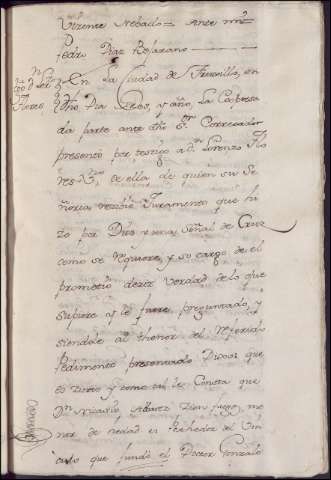 Vizente Nebado = Ante mi =
Pedro Diaz Roxarano
En la Ciudad de Truxillo, en
dho Dia mes, y año, la expresa
da parte ante dho Sr. Correxidor
presentó por testigo a Dn. Lorenzo Flo
res Vno. de ella de quien su Se
ñoria recivió Juramento que hi
zo por Dios y una señal de Cruz
como se requiere, y so cargo de el
prometió dezir verdad de lo que
supiere y le fuere preguntado, y
siendole al thenor del referido
Pedimento presentado Dixo: que
es zierto y como tal le Consta que
Dn. Alvarez
nor de hedad es Posehedor del Vin
culo que fundó el Doctor Gonzalo